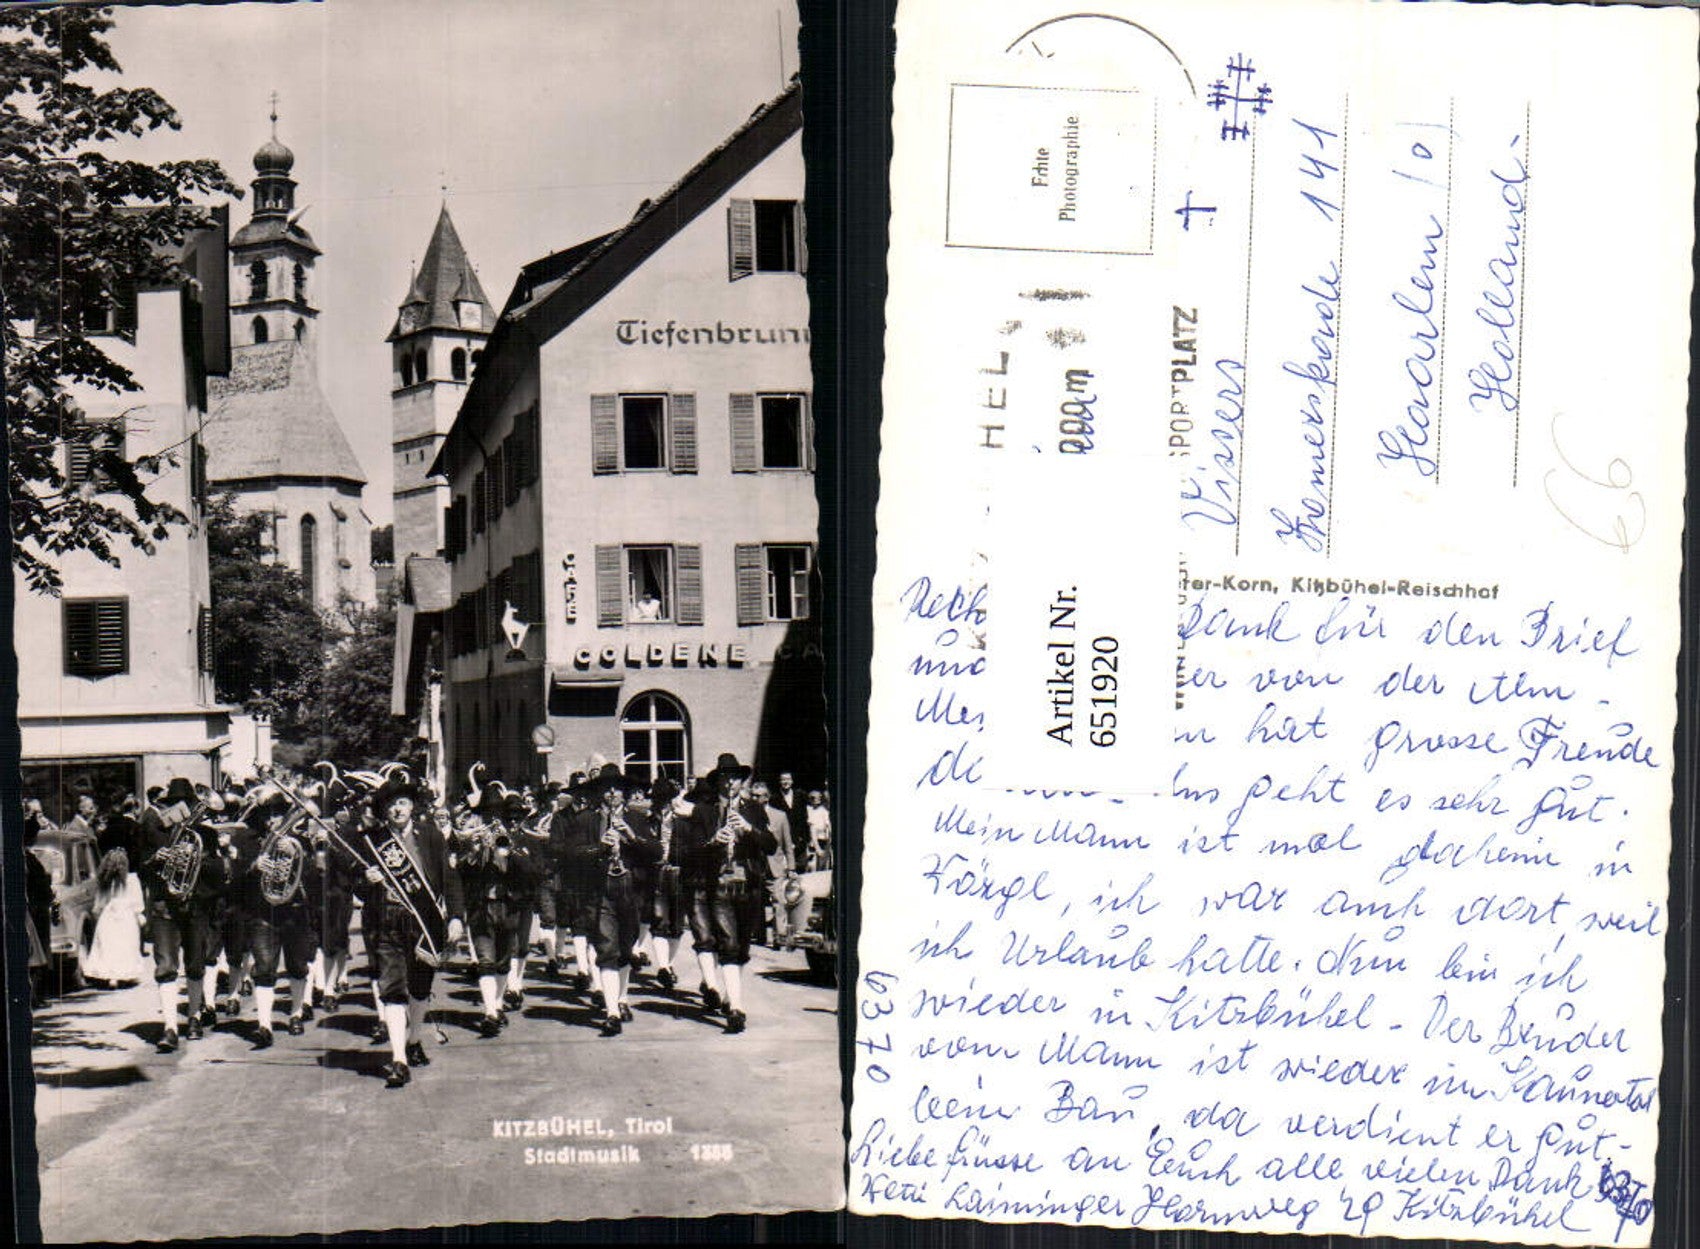 Tiefenbrunn
CAFE
GOLDENE
KITZBÜHEL, Tirol
Stadtmusik 1355
Echte
Photographie
HEL
SPORTPLATZ
Artikel Nr.
651920
Vissers
141
Haarlem
Holland.
66
ter-Korn, Kitzbühel-Reischhof
Dank für den Brief
und er von der
hat grosse Freude
geht es sehr gut.
Mein Mann ist mal daheim in
Wörgl, ich war auch dort, weil
ich Urlaub hatte. Nun bin ich
wieder in Kitzbühel - Der Bruder
vom Mann ist wieder im Kaunertal
beim Bau, da verdient er gut -
Liebe Grüsse an Euch alle vielen Dank
Laiminger Hornweg 29 Kitzbühel
6370
6370